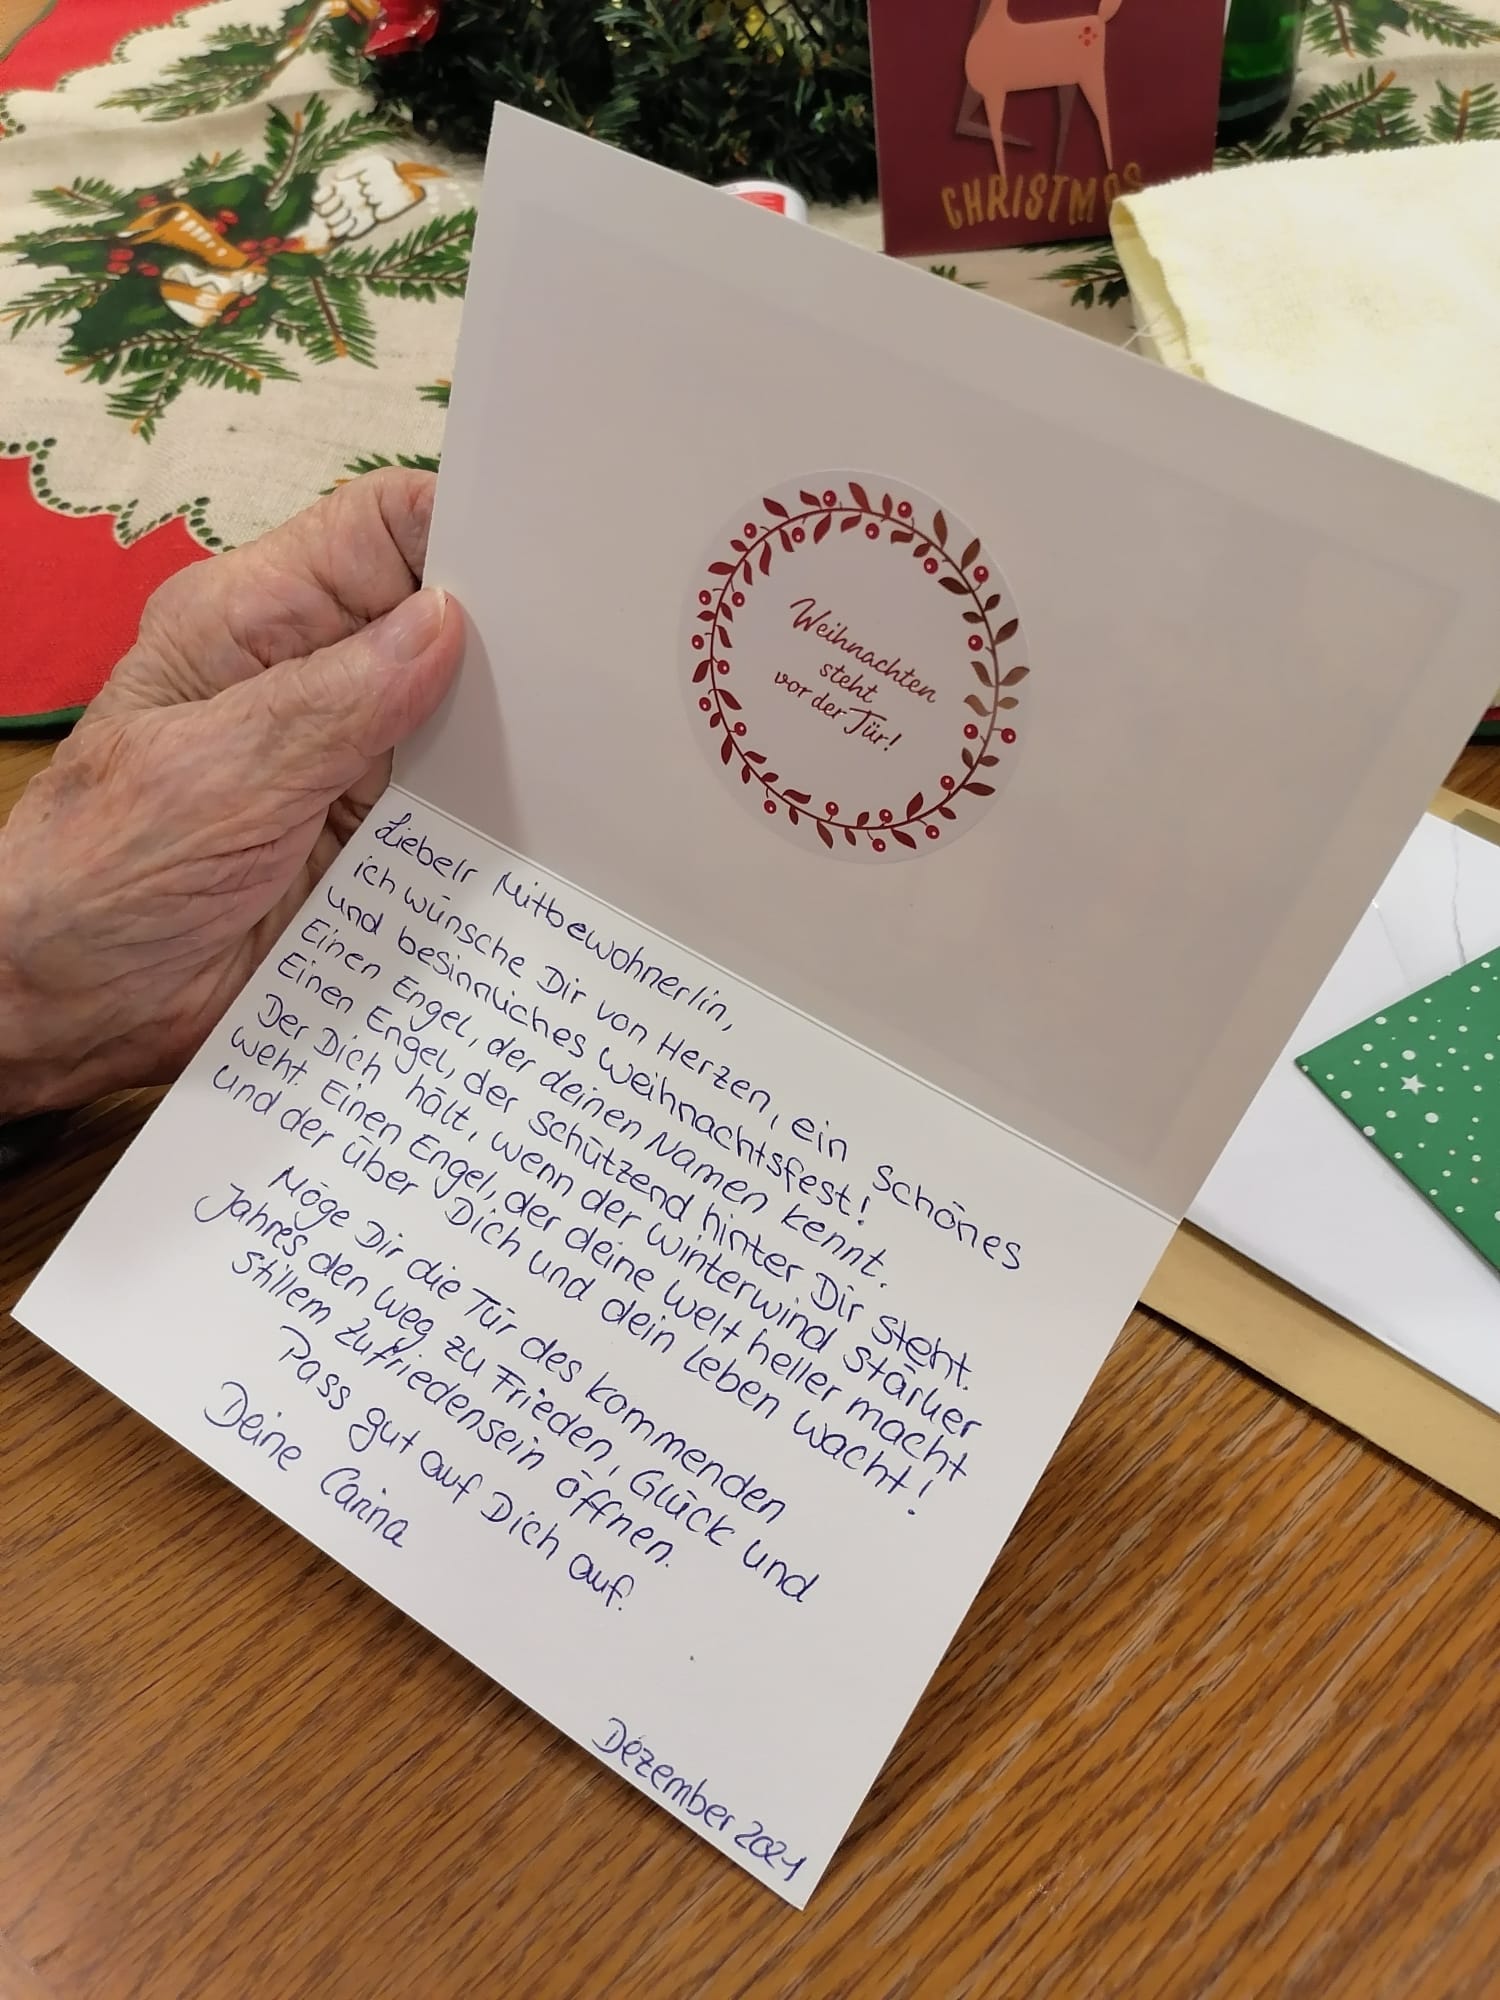 CHRISTMAS
Weihnachten
steht
vor der Tür!
Liebe/r Mitbewohner/in,
ich wünsche Dir von Herzen, ein schönes
und besinnliches Weihnachtsfest!
Einen Engel, der deinen Namen kennt.
Einen Engel, der schützend hinter Dir steht.
Der Dich hält, wenn der Winterwind stärker
weht. Einen Engel, der deine Welt heller macht
und der über Dich und dein Leben wacht!
Möge Dir die Tür des kommenden
Jahres den Weg zu Frieden, Glück und
stillem Zufriedensein öffnen.
Pass gut auf Dich auf.
Deine Carina
Dezember 2021